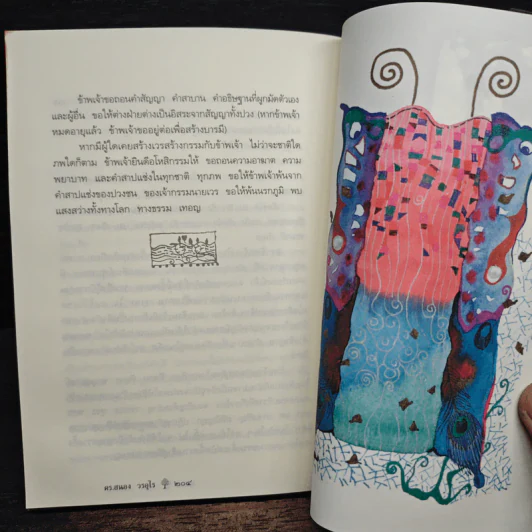 ข้าพเจ้าขอถอนคำสัญญา คำสาบาน คำอธิษฐานที่ผูกมัดตัวเอง
และผู้อื่น ขอให้ต่างฝ่ายต่างเป็นอิสระจากสัญญาทั้งปวง (หากข้าพเจ้า
หมดอายุแล้ว ข้าพเจ้าขออยู่ต่อเพื่อสร้างบารมี)
หากมีผู้ใดเคยสร้างเวรสร้างกรรมกับข้าพเจ้า ไม่ว่าจะชาติใด
ภพใดก็ตาม ข้าพเจ้ายินดีอโหสิกรรมให้ ขอถอนความอาฆาต ความ
พยาบาท และคำสาปแช่งในทุกชาติ ทุกภพ ขอให้ข้าพเจ้าพ้นจาก
คำสาปแช่งของปวงชน ของเจ้ากรรมนายเวร ขอให้พ้นนรกภูมิ พบ
แสงสว่างทั้งทางโลก ทางธรรม เทอญ
ดร.สนอง วรอุไร ๒๐๔